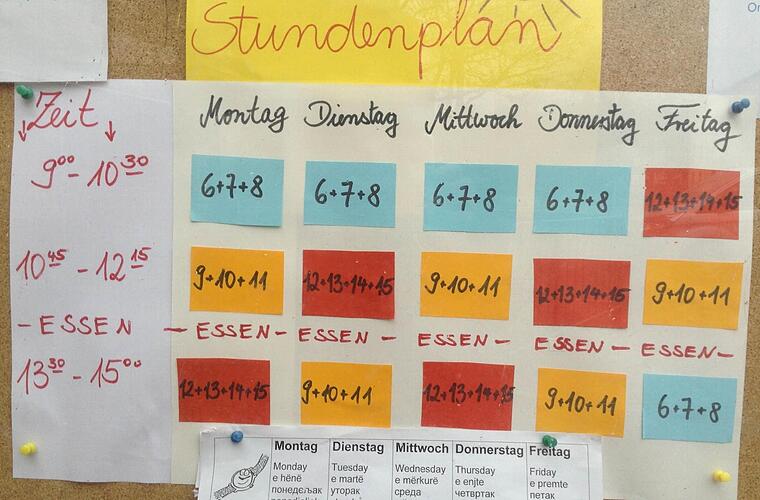 Stundenplan
On
Zeit Montag Dienstag Mittwoch Donnerstag Freitag
9⁰⁰ - 10³⁰ 6+7+8 6+7+8 6+7+8 6+7+8 12+13+14+15
10⁴⁵ - 12¹⁵ 9+10+11 12+13+14+15 9+10+11 12+13+14+15 9+10+11
- ESSEN - ESSEN - ESSEN - ESSEN - ESSEN - ESSEN -
13³⁰ - 15⁰⁰ 12+13+14+15 9+10+11 12+13+14+15 9+10+11 6+7+8
Montag Dienstag Mittwoch Donnerstag Freitag
Monday Tuesday Wednesday Thursday Friday
e hënë e martë e mërkurë e enjte e premte
понедељак уторак среда четвртак петак